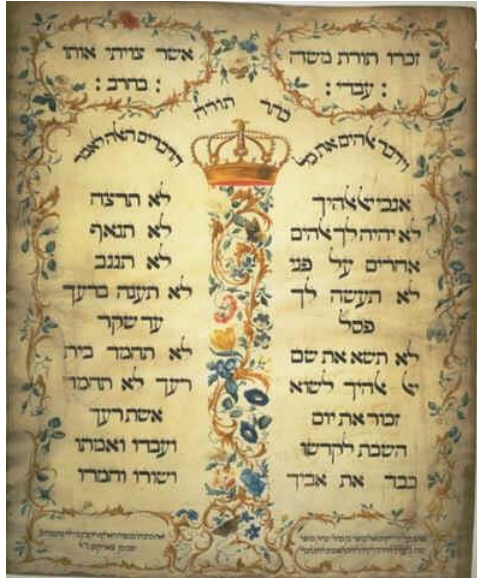 זכרו תורת משה
עבדי :
אשר צויתי אותו
בחרב :
כתר תורה
וידבר אהים את כל
הדברים האלה לאמר
אנכי יי אלהיך
לא יהיה לך אהים
אחרים על פני
לא תעשה לך
פסל
לא תשא את שם
יי אהיך לשוא
זכור את יום
השבת לקדשו
כבד את אביך
לא תרצח
לא תנאף
לא תגנב
לא תענה ברעך
עד שקר
לא תחמד בית
רעך לא תחמד
אשת רעך
ועבדו ואמתו
ושורו וחמרו